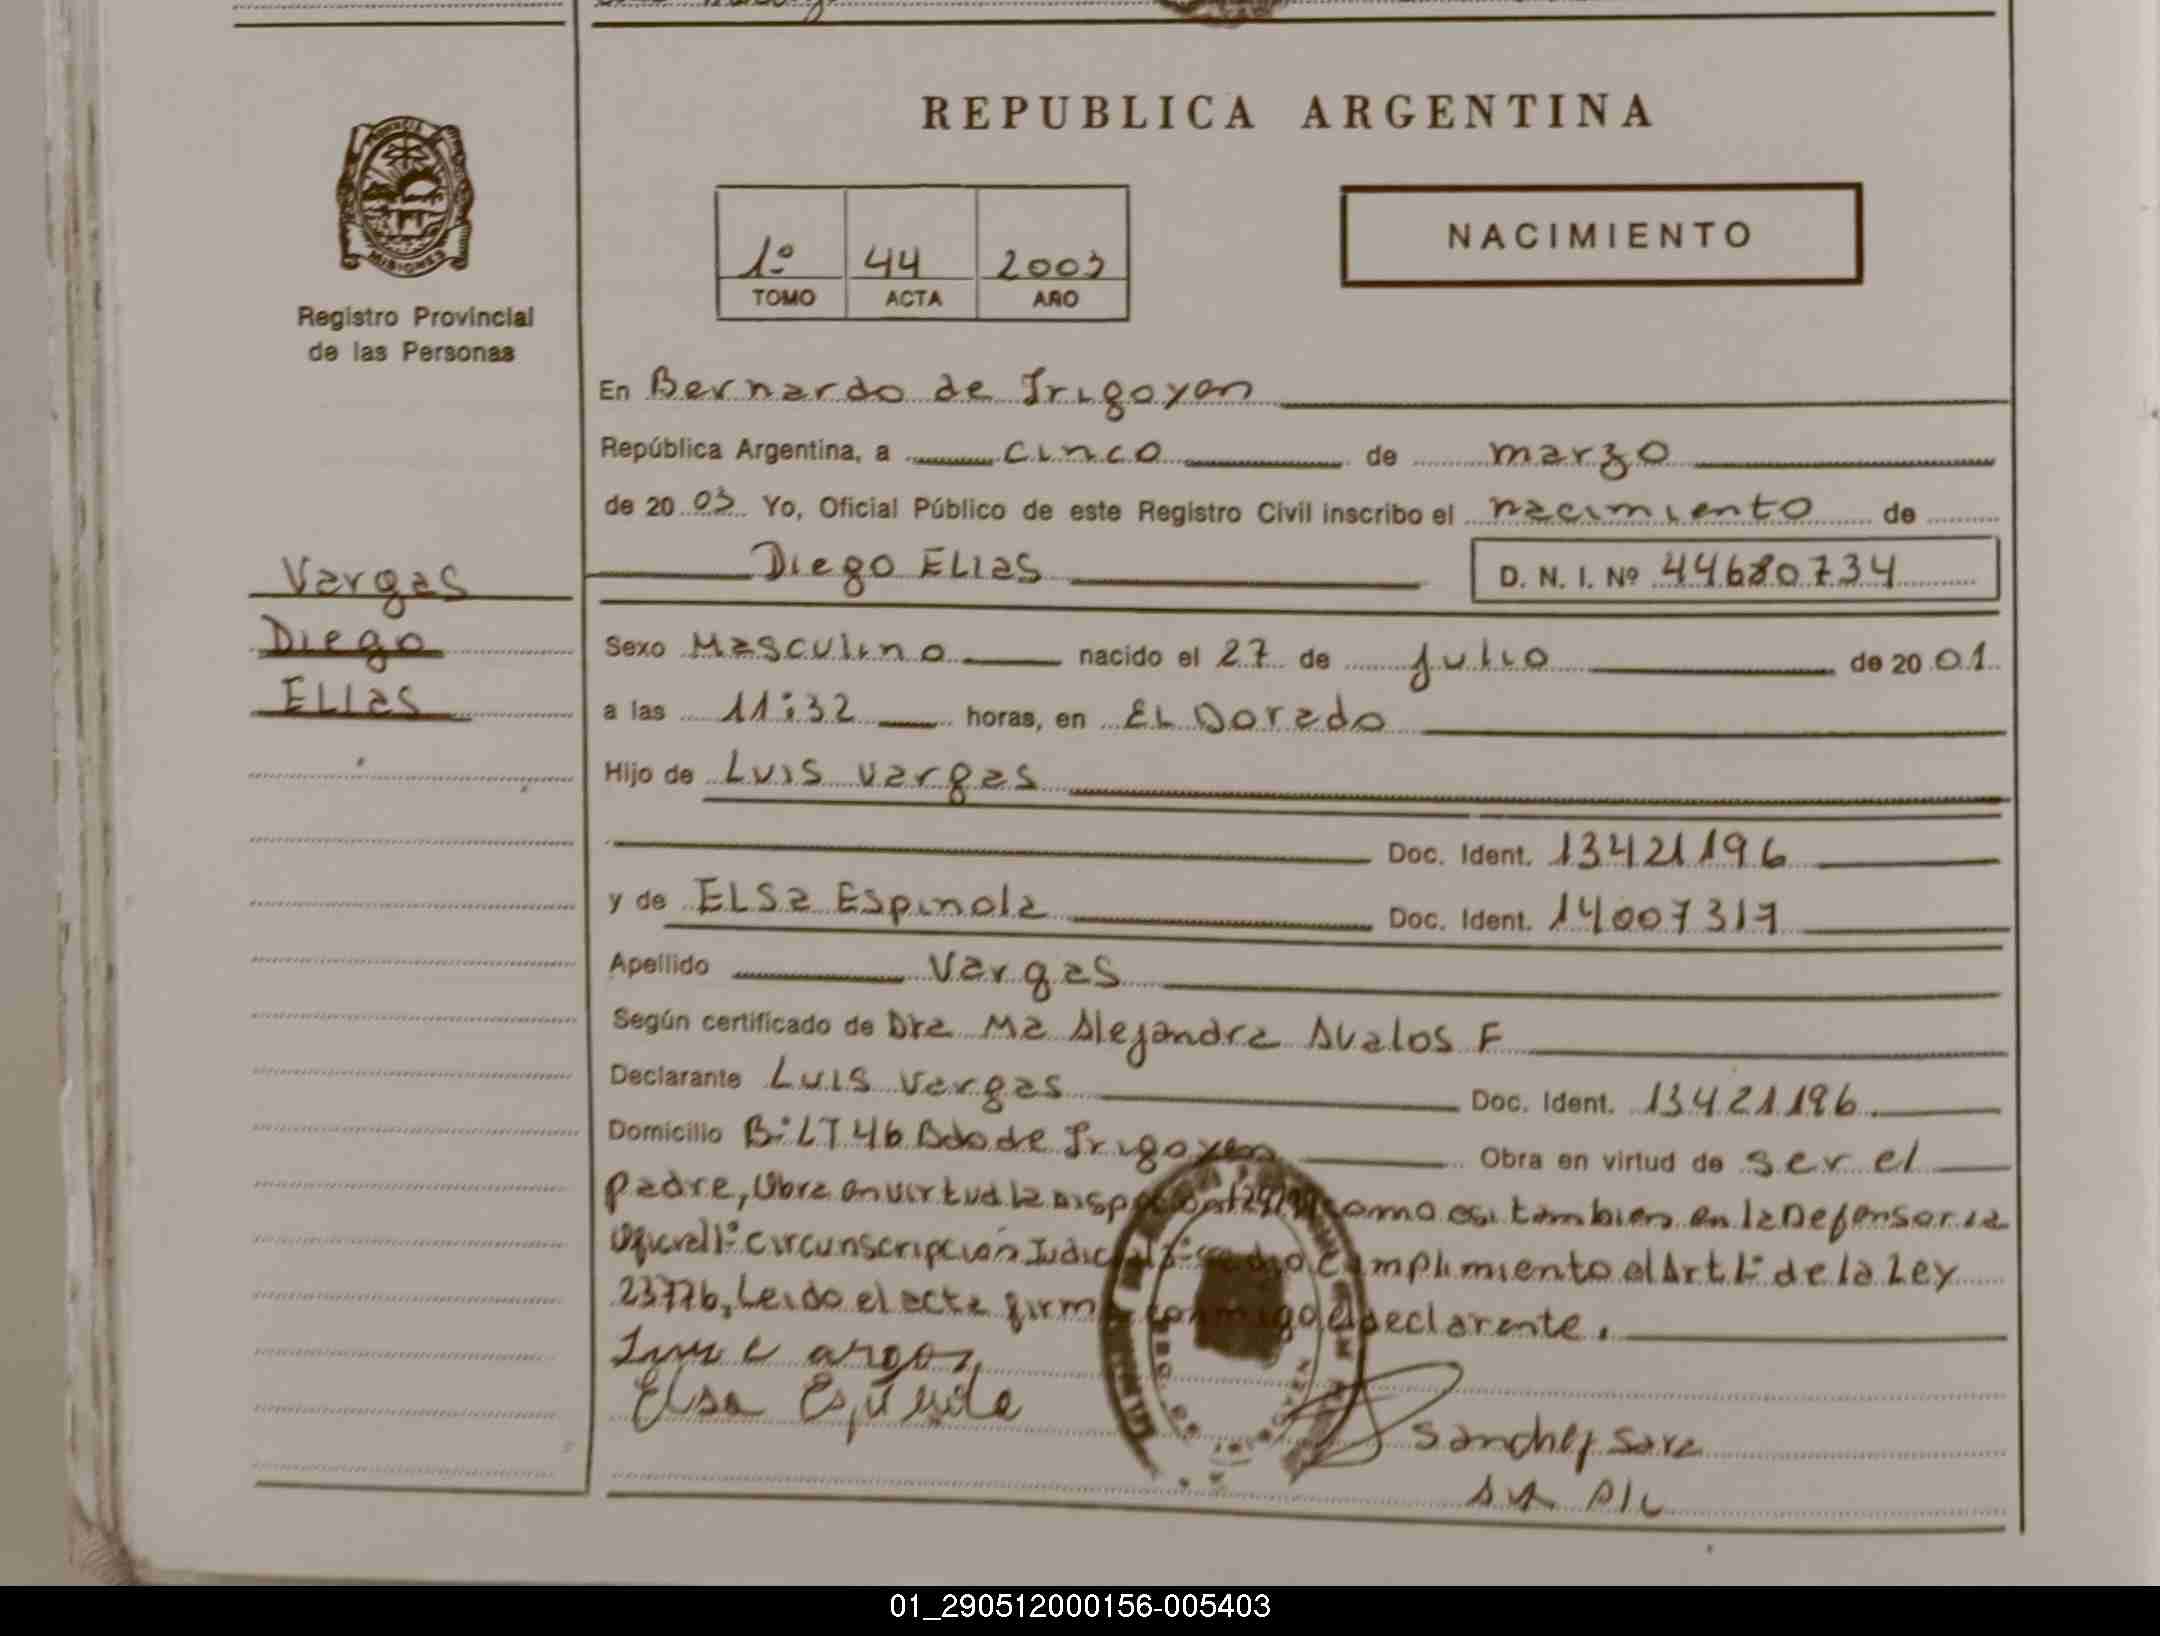 REPUBLICA ARGENTINA
MISIONES
Registro Provincial
de las Personas
1º 44 2003
TOMO ACTA AÑO
NACIMIENTO
En Bernardo de Irigoyen
República Argentina, a cinco de marzo
de 20 03 Yo, Oficial Público de este Registro Civil inscribo el nacimiento de
Diego ELias D. N. I. Nº 44680734
Vargas
Diego
ELias
Sexo Masculino nacido el 27 de julio de 20 01
a las 11:32 horas, en EL Dorado
Hijo de Luis Vargas
Doc. Ident. 13421196
y de ELSa Espinola Doc. Ident. 14007317
Apellido Vargas
Según certificado de Dra Ma Alejandra Avalos F
Declarante Luis Vargas Doc. Ident. 13421196
Domicilio B: LT 46 Bdo de Irigoyen Obra en virtud de ser el
padre, Obra en virtud la como asi tambien en la Defensoria
Oficial 1º circunscripción Judicial cumplimiento al Art 1º de la Ley
23776, Leido el acta firma conmigo el declarante.
Elsa Espinola
Sanchez Sara
01_290512000156-005403